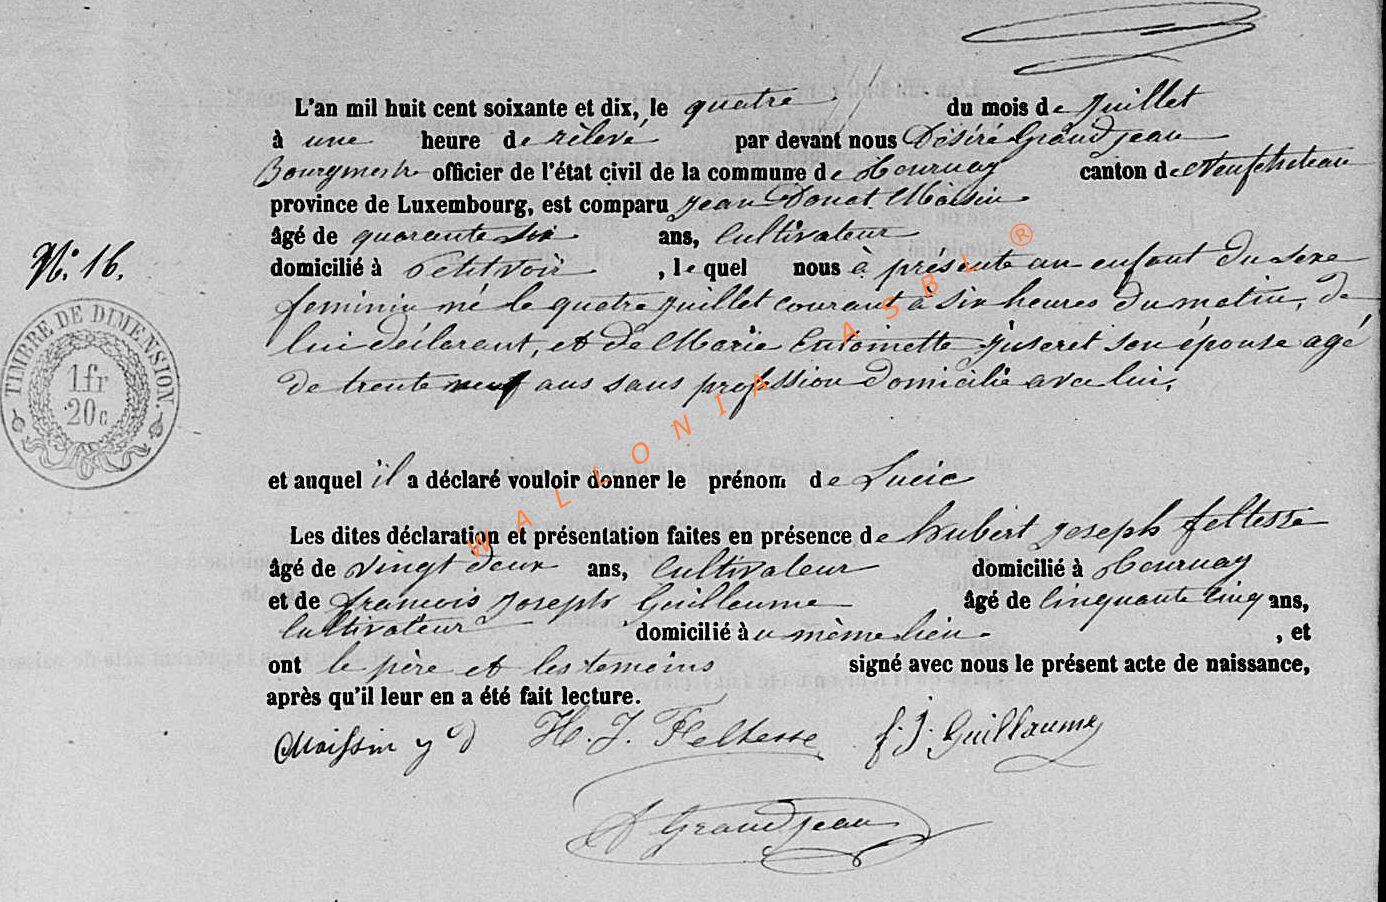 L'an mil huit cent soixante et dix, le quatre du mois de Juillet
à une heure de rélevé par devant nous Désiré Grandjean
Bourgmestre officier de l'état civil de la commune de Tournay canton de Neufchateau
province de Luxembourg, est comparu Jean Donat Moissin
âgé de quarante six ans, Cultivateur
domicilié à Petitvoir, lequel nous à présenté un enfant du sexe
N° 16.
feminin né le quatre juillet courant à six heures du matin, de
lui déclarant, et de Marie Antoinette Juseret son épouse agé
de trente neuf ans sans profession domicilié avec lui.
TIMBRE DE DIMENSION.
1 fr
20 c
et auquel il a déclaré vouloir donner le prénom de Lucie
Les dites déclaration et présentation faites en présence de hubert Joseph feltesse
âgé de vingt deux ans, Cultivateur domicilié à Tournay
et de françois Joseph Guillaume âgé de Cinquante Cinq ans,
Cultivateur domicilié au même lieu, et
ont le père et les temoins signé avec nous le présent acte de naissance,
après qu'il leur en a été fait lecture.
Moissin J D H. J. Feltesse f. J. Guillaume
D Grandjean
WALLONIA ASBL ®